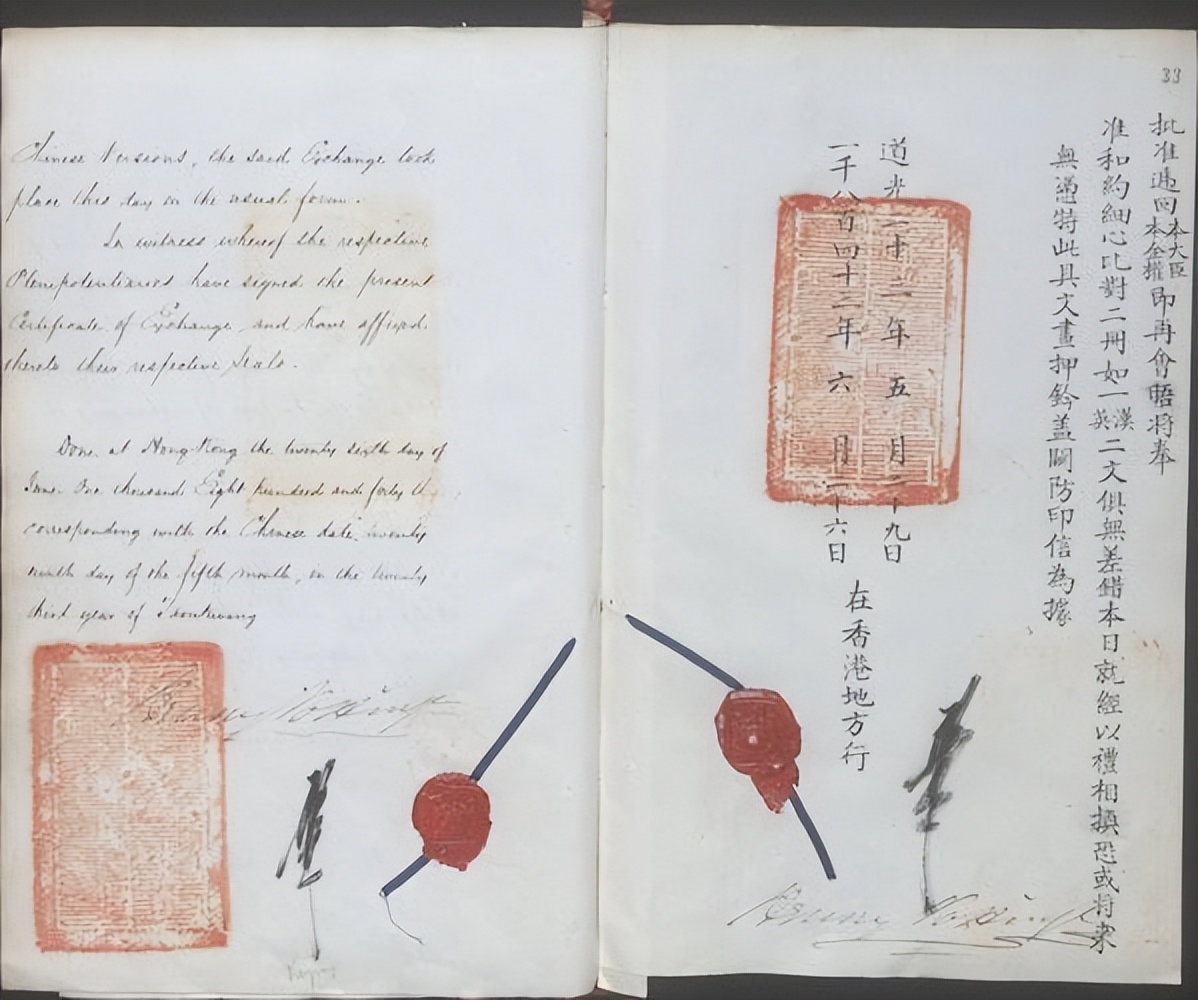 Chinese Versions, the said Exchange took
place this day in the usual form.
In witness whereof the respective
Plenipotentiaries have signed the present
Certificate of Exchange and have affixed
thereto their respective Seals.
Done at Hong Kong the twenty sixth day of
June One thousand Eight hundred and forty
corresponding with the Chinese date, twenty
ninth day of the fifth month, in the twenty
third year of Taoukwang
Henry Pottinger
33
批准遞回本大臣本全權即再會晤將奉
准和約細心比對二冊如一漢英二文俱無差錯本日就經以禮相換恐或將來
無憑特此具文畫押鈐蓋關防印信為據
道光二十三年五月二十九日
一千八百四十三年六月二十六日
在香港地方行
Henry Pottinger